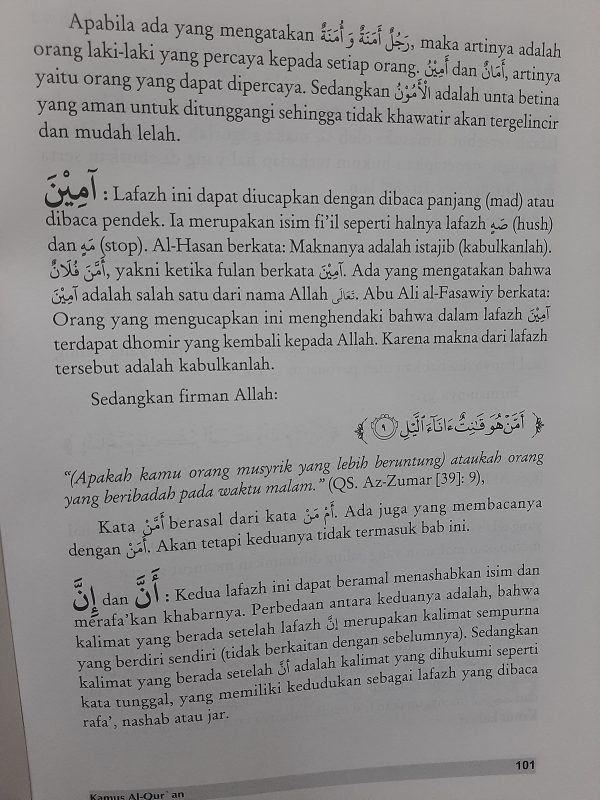 Apabila ada yang mengatakan رَجُلٌ أَمَنَةٌ وَ أُمَنَةٌ, maka artinya adalah
orang laki-laki yang percaya kepada setiap orang. أَمِيْنٌ dan أَمَانٌ, artinya
yaitu orang yang dapat dipercaya. Sedangkan الْأَمُوْنُ adalah unta betina
yang aman untuk ditunggangi sehingga tidak khawatir akan tergelincir
dan mudah lelah.
آمِيْنَ : Lafazh ini dapat diucapkan dengan dibaca panjang (mad) atau
dibaca pendek. Ia merupakan isim fi'il seperti halnya lafazh صَهٍ (hush)
dan مَهٍ (stop). Al-Hasan berkata: Maknanya adalah istajib (kabulkanlah).
أَمَّنَ فُلَانٌ, yakni ketika fulan berkata آمِيْنَ. Ada yang mengatakan bahwa
آمِيْنَ adalah salah satu dari nama Allah تَعَالَى. Abu Ali al-Fasawiy berkata:
Orang yang mengucapkan ini menghendaki bahwa dalam lafazh آمِيْنَ
terdapat dhomir yang kembali kepada Allah. Karena makna dari lafazh
tersebut adalah kabulkanlah.
Sedangkan firman Allah:
﴿ أَمَّنْ هُوَ قَٰنِتٌ ءَانَآءَ ٱلَّيْلِ ٩ ﴾
“(Apakah kamu orang musyrik yang lebih beruntung) ataukah orang
yang beribadah pada waktu malam.” (QS. Az-Zumar [39]: 9),
Kata أَمَّنْ berasal dari kata أَمْ مَنْ. Ada juga yang membacanya
dengan أَمَنْ. Akan tetapi keduanya tidak termasuk bab ini.
إِنَّ dan أَنَّ : Kedua lafazh ini dapat beramal menashabkan isim dan
merafa'kan khabarnya. Perbedaan antara keduanya adalah, bahwa
kalimat yang berada setelah lafazh إِنَّ merupakan kalimat sempurna
yang berdiri sendiri (tidak berkaitan dengan sebelumnya). Sedangkan
kalimat yang berada setelah أَنَّ adalah kalimat yang dihukumi seperti
kata tunggal, yang memiliki kedudukan sebagai lafazh yang dibaca
rafa', nashab atau jar.
101
Kamus Al-Qur`an